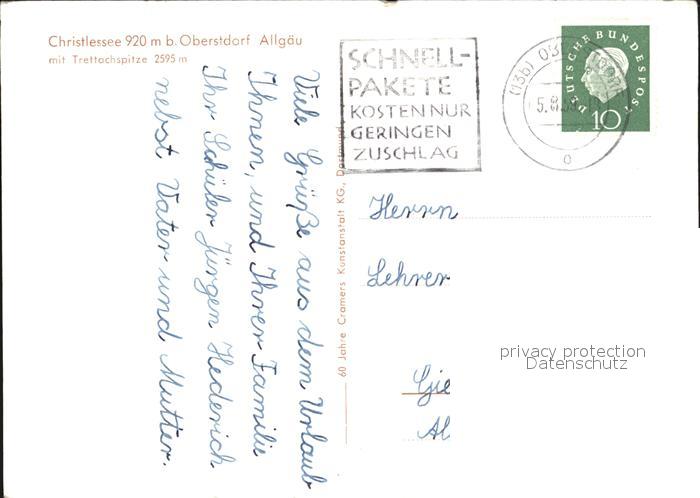 Christlessee 920 m b. Oberstdorf Allgäu
mit Trettachspitze 2595 m
SCHNELL-
PAKETE
KOSTEN NUR
GERINGEN
ZUSCHLAG
(13b)
DEUTSCHE BUNDESPOST
10
Viele Grüße aus dem Urlaub
Ihnen, und Ihrer Familie
Ihr Schüler Jürgen Hederich
nebst Vater und Mutter.
60 Jahre Cramers Kunstanstalt KG., Dortmund
Herrn
Lehrer
Gie
Al
privacy protection
Datenschutz